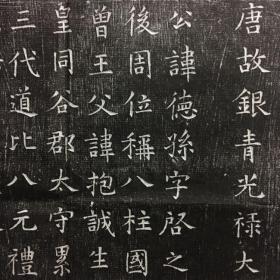 唐故銀青光祿大
公諱德孫字啓之
後周位稱八柱國
曾王父諱抱誠生
皇同谷郡太守累
三代道比八元禮